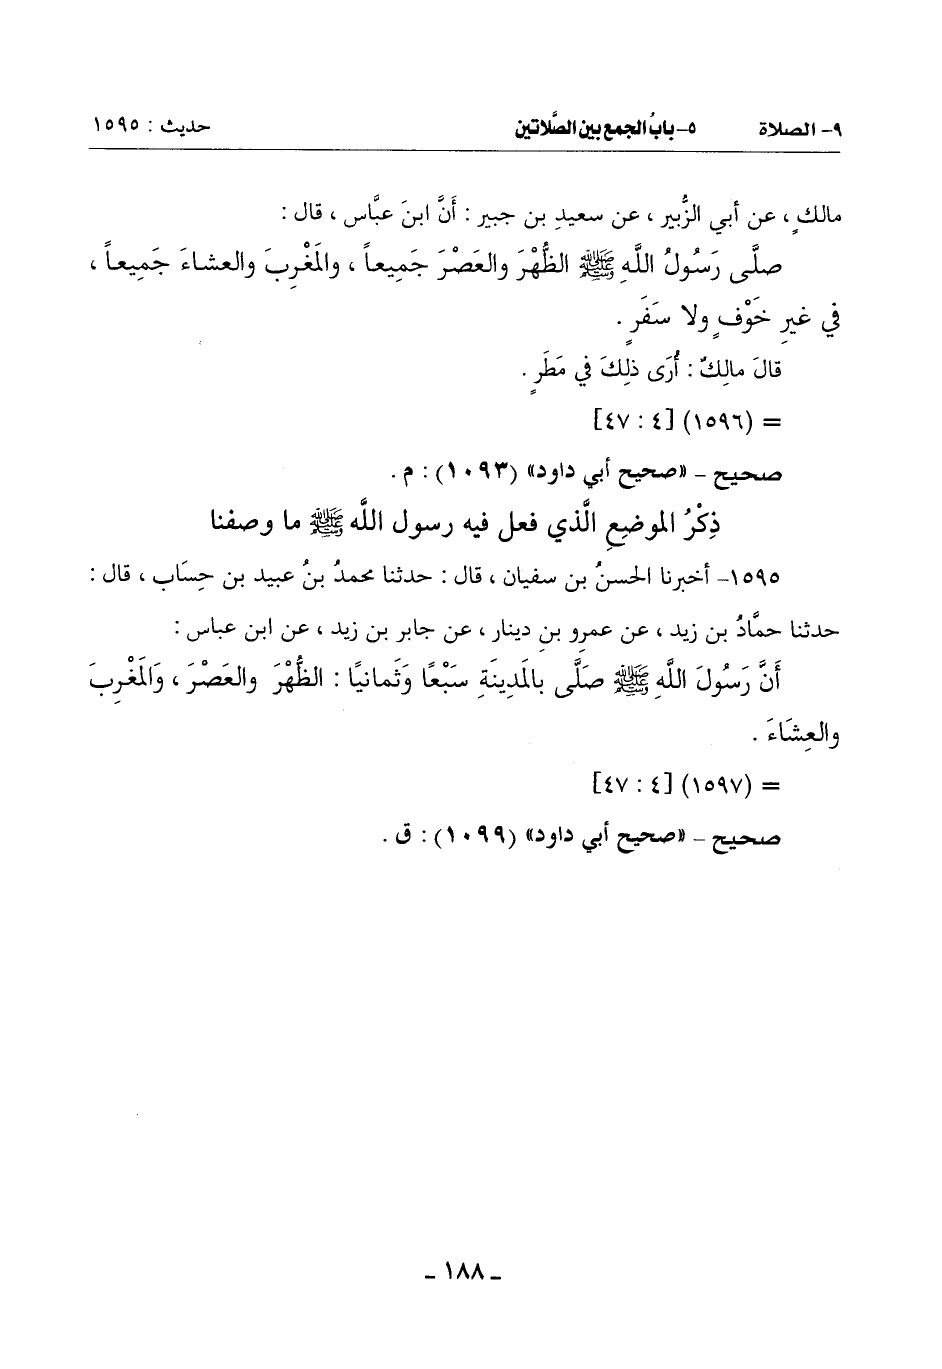 ٩- الصلاة ٥- بابُ الجمع بين الصَّلاتين حديث : ١٥٩٥
مالكٍ ، عن أبي الزُّبير ، عن سعيدِ بن جبير : أنَّ ابنَ عبَّاس ، قال :
صلَّى رَسُولُ اللَّهِ ﷺ الظُّهْرَ والعَصْرَ جَمِيعاً ، والمَغْرِبَ والعشاءَ جَمِيعاً ،
في غيرِ خَوْفٍ ولا سَفَرٍ .
قالَ مالِكٌ : أُرَى ذلِكَ في مَطَرٍ .
= (١٥٩٦) [٤ : ٤٧]
صحيح - «صحيح أبي داود» (١٠٩٣) : م .
ذِكْرُ الموضِعِ الَّذي فعل فيه رسول اللَّه ﷺ ما وصفنا
١٥٩٥- أخبرنا الحسنُ بن سفيان ، قال : حدثنا محمدُ بنُ عبيد بن حِسَاب ، قال :
حدثنا حمَّادُ بن زيد ، عن عمرِو بنِ دينار ، عن جابر بن زيد ، عن ابن عباس :
أَنَّ رَسُولَ اللَّهِ ﷺ صَلَّى بالمَدِينَةِ سَبْعًا وَثَمانيًا : الظُّهْرَ والعَصْرَ ، وَالمَغْرِبَ
والعِشَاءَ .
= (١٥٩٧) [٤ : ٤٧]
صحيح - «صحيح أبي داود» (١٠٩٩) : ق .
- ١٨٨ -